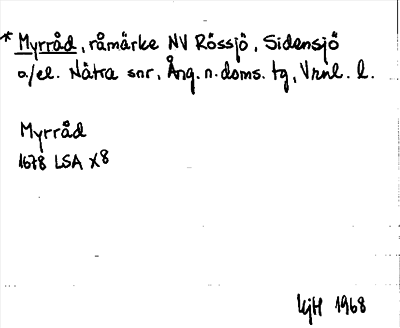 * Myrråd, råmärke NV Rössjö, Sidensjö
o./el. Nätra snr, Ång. n. doms. tg, Vrnl. l.
Myrråd
1678 LSA X8
KjH 1968